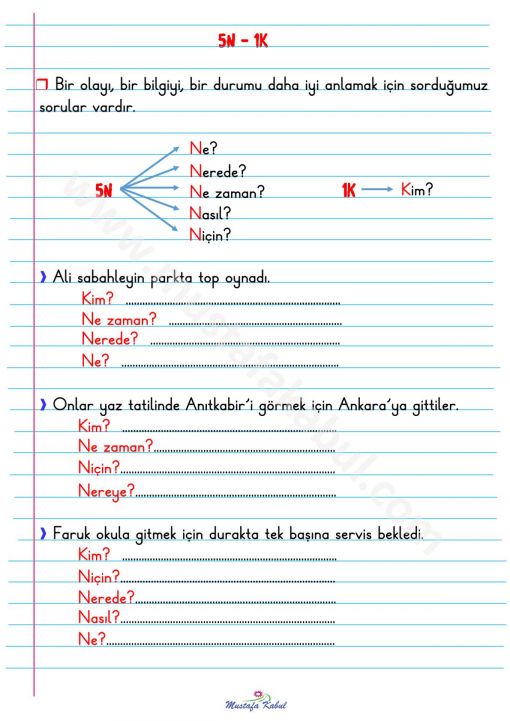 5N - 1K
Bir olayı, bir bilgiyi, bir durumu daha iyi anlamak için sorduğumuz
sorular vardır.
5N
Ne?
Nerede?
Ne zaman?
Nasıl?
Niçin?
1K
Kim?
Ali sabahleyin parkta top oynadı.
Kim? ..........................................................
Ne zaman? ..........................................................
Nerede? ..........................................................
Ne? ..........................................................
Onlar yaz tatilinde Anıtkabir'i görmek için Ankara'ya gittiler.
Kim? ..........................................................
Ne zaman?..........................................................
Niçin?..........................................................
Nereye?..........................................................
Faruk okula gitmek için durakta tek başına servis bekledi.
Kim? ..........................................................
Niçin?..........................................................
Nerede?..........................................................
Nasıl?..........................................................
Ne?..........................................................
Mustafa Kabul
www.mustafakabul.com